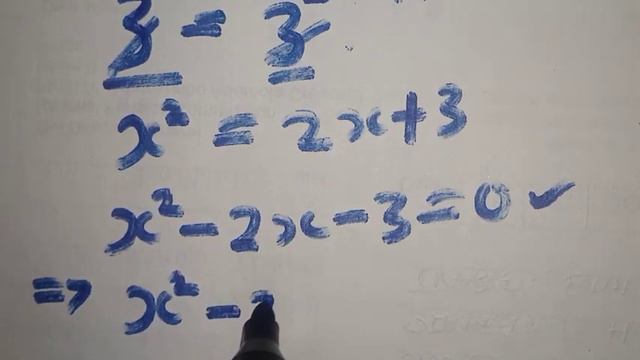 3 = 3
x² = 2x+3
x² - 2x - 3 = 0 ✓
⇒ x² -